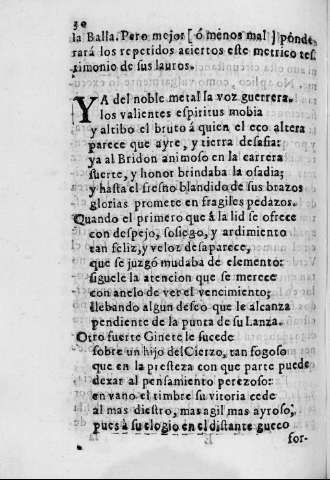 30
la Balla. Pero mejor [ ó menos mal ] ponde
rará los repetidos aciertos este metrico tes
timonio de sus lauros.
YA del noble metal la voz guerrera
los valientes espiritus mobia
y altibo el bruto á quien el eco altera
parece que ayre, y tierra desafia:
ya al Bridon animoso en la carrera
suerte, y honor brindaba la osadia;
y hasta el fresno blandido de sus brazos
glorias promete en fragiles pedazos.
Quando el primero que á la lid se ofrece
con despejo, sosiego, y ardimiento
tan feliz, y veloz desaparece,
que se juzgó mudaba de elemento:
siguele la atencion que se merece
con anelo de ver el vencimiento;
llebando algun deseo que le alcanza
pendiente de la punta de su Lanza.
Otro fuerte Ginete le sucede
sobre un hijo del Cierzo, tan fogoso
que en la presteza con que parte puede
dexar al pensamiento perezoso:
en vano el timbre su vitoria cede
al mas diestro, mas agil mas ayroso,
pues à su elogio en el distante gueco
for-